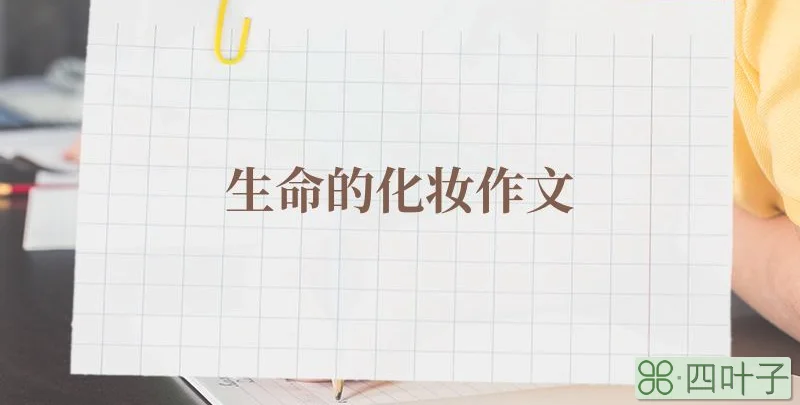 生命的化妆作文
四叶子